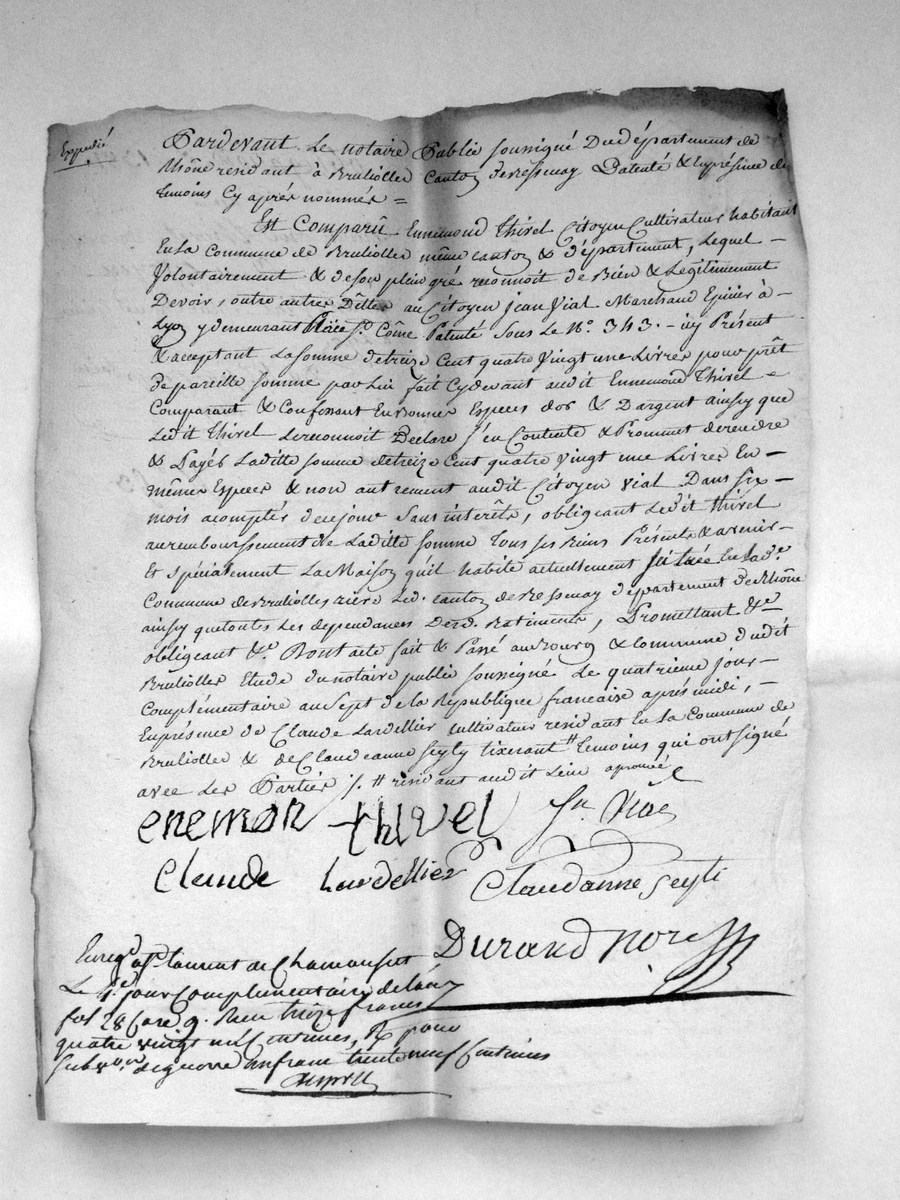 Expedié
Pardevant Le notaire Public soussigné Du département de
Rhône residant à Brulliolles Canton de Bessenay Patenté & En présence des
temoins Cy après nommés =
Est Comparû Ennemond thivel Citoyen Cultivateur habitant
En La Commune de Brulliolles même canton & département, Lequel -
Volontairement & de son plein gré reconnoit de Bien & Légitimement
Devoir, outre autres Dêttes au Citoyen Jean Vial Marchand Epicier à -
Lyon y demeurant Place St. Côme Patenté Sous Le No. 343. - icy Présent
& acceptant La somme de treize Cent quatre Vingt une Livres pour prêt
de pareille somme par Lui fait Cy devant audit Ennemond thivel =
Comparant & Confessant En Bonnes Especes d'or & D'argent ainsy que
Ledit thivel Le reconnoit Declare s'en Contente & Prommet de rendre
& Payér Laditte somme de treize Cent quatre Vingt une Livres En -
mêmes Especes & non autrement audit Citoyen Vial Dans six -
mois a compter de ce jour Sans interêts, obligeant Ledit thivel
au remboursement de Laditte somme tous ses Biens Présents & avenir -
Et spécialement La Maison qu'il habite actuellement Située En Lade.
Commune de Brulliolles rière Led. canton de Bessenay département de Rhône
ainsy que toutes Les dependances Desd. Batiments, Promettant &a
obligeant &a. Dont acte fait & Passé au Bourg & Commune dudit
Brulliolles Etude du notaire public soussigné Le quatrieme jour -
Complémentaire an Sept de la Republique francaise après midi, -
En présence de Claude Lardellier cultivateur residant En La Commune de
Brulliolles & de Claudeanne Seyty tixerant # temoins qui ont signé
avec Les Parties /. # résidant audit Lieu aprouvé
enemon thivel Jn. Vial
Claude Lardellier Claudanne Seyti
Durand nore
Enregé. a St. Laurent de Chamousset
Le 4e. jour Complementaire de l'an 7
fol 28 Case 9. Reçu treize francs
quatre vingt six Centimes, & pour
subvon. de guerre un franc trente neuf Centimes